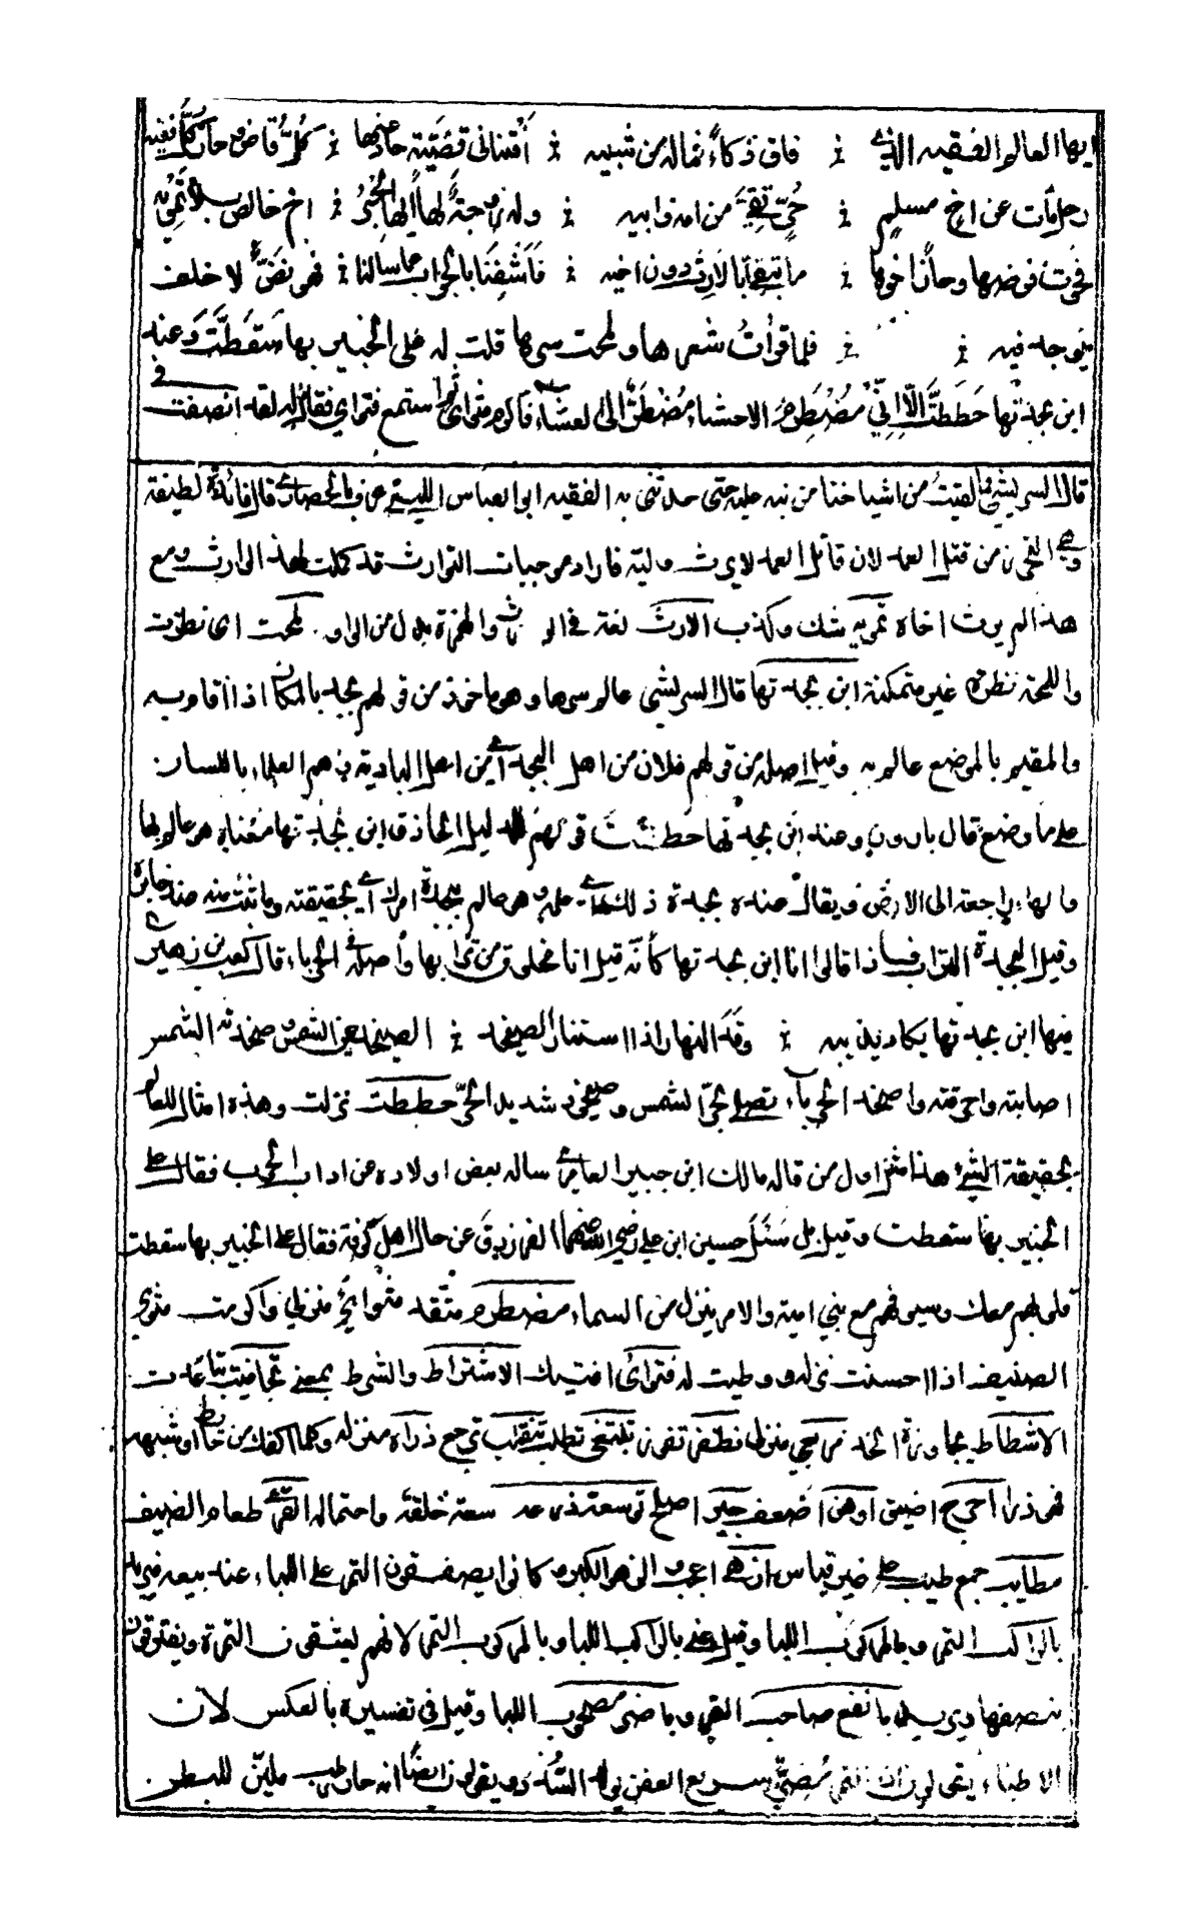 ايها العالم الفقيه الذي ؛ فاق ذكاءً فماله من شبيه ؛ أفتنا في قضيّة حاد عنها ؛ كلُّ قاضٍ وحار كلّ فقيه
رجل مات عن اخٍ مسلمٍ ؛ حُرٍّ تقيٍّ من امه وابيه ؛ وله زوجةٌ لها ايها الحبرُ ؛ اخ خالص بلا تمويه
فحوت فرضها وحاز اخوها ؛ ما تبقّى بالارث دون اخيه ؛ فاشفنا بالجواب عما سالنا ؛ فهو نصٌّ لا خلف
يوجد فيه ؛ ؛ فلما قرأتُ شعرها ولمحت سرها قلت له على الخبير بها سقطتَّ وعند
ابن بجدتها حططتَّ الّا انّي مضطرم الاحشاء مضطرٌّ الى العشاء فاكرم مثواي ثم استمع فتواي فقال له لقد انصفت في
قال الشريشي لقيت من اشياخنا من نبه عليه حتى حدثني به الفقيه ابو العباس قال فائدة لطيفة
وهي التحرز من قتل العمد لان قاتل العمد لا يرث وليه فاراد موجبات التوارث قد كملت لهذا الوارث ومع
هذا لم يرث اخاه تمويه شك وكذب الارث لغة في الورث والهمزة بدل من الواو لمحت اى نظرت
واللمحة نظرة غير متمكنة ابن بجدتها قال الشريشي عالم سرها وهو ماخوذ من قولهم بجد بالمكان اذا اقام به
والمقيم بالموضع عالم به وقيل اصله من قولهم فلان من اهل البجدة أي من اهل البادية وهم العلماء باللسان
على ما وضع قال بارون وعند ابن بجدتها حططت قولهم للدليل الحاذق ابن بجدتها معناه هو عالم بها
والهاء راجعة الى الارض ويقال عنده بجدة ذلك اي علمه وهو عالم ببجدة امرك أي بحقيقته وما تثبت منه
وقيل البجدة التراب فاذا قالوا انا ابن بجدتها كأنّه قيل انا مخلوق من ترابها واصله في الحرباء قال كعب بن زهير
فيها ابن بجدتها يكاد يذيبه ؛ وقد النهار اذا استنار الصيخد ؛ الصيخد عين الشمس وصخدته الشمس
اصابته واحرقته واصخد الحرباء تصلى بحرّ الشمس وصيخود شديد الحرّ حططت نزلت وهذه امثال للعالم
بحقيقة الشئ هذا مثل اول من قاله مالك ابن جبير العامري ساله بعض اولاده عن اداب الحرب فقال على
الخبير بها سقطت وقيل بل سئل حسين ابن علي رضي الله عنهما الفرزدق عن حال اهل كوفة فقال على الخبير بها سقطت
قلوبهم معك وسيوفهم مع بني امية والامر ينزل من السماء مضطرم متّقد مثواي منزلي واكرمت مثوى
الضيف اذا احسنت نزله ووطيت له فتواى افتيك الاشتراط والشرط بمعنى تجافيت تباعدت
الاشطاط مجاوزة الحد مربعي منزلي تظفر تفوز تبتغي تطلب تنقلب ترجع ذراه منزله وكلما اكنك من حائط او شبهه
فهو ذرا احرج اضيق اوهن اضعف حير اصلح توسعة ذرعه سعة خلقه واحتماله القرى طعام الضيف
مطايب جمع طيب على غير قياس ازهى اعجب الزهو الكبر كانوا يصفقون التمر على اللباء عند بيعه فيريد
بالراكب التمر وبالمركوب اللبا وقيل عنى بالراكب اللبا وبالمركوب التمر لانهم يشقون التمرة ويفترقون
نصفها ويريد بانفع صاحب التمر وباضر مصحوب اللبا وقيل في تفسيره بالعكس لان
الاطباء يقولون ان التمر مضرّ سريع العفن يولد السُّدد ويقولون ايضا انه حار رطب مليّن للبطن